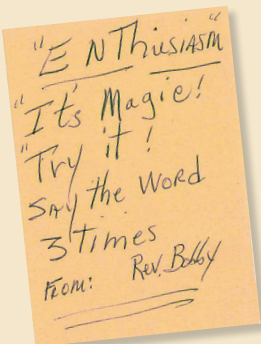 "ENThusiASM"
"It's Magic!
"Try it!
SAY the WORD
3 Times
FROM: Rev. Bobby